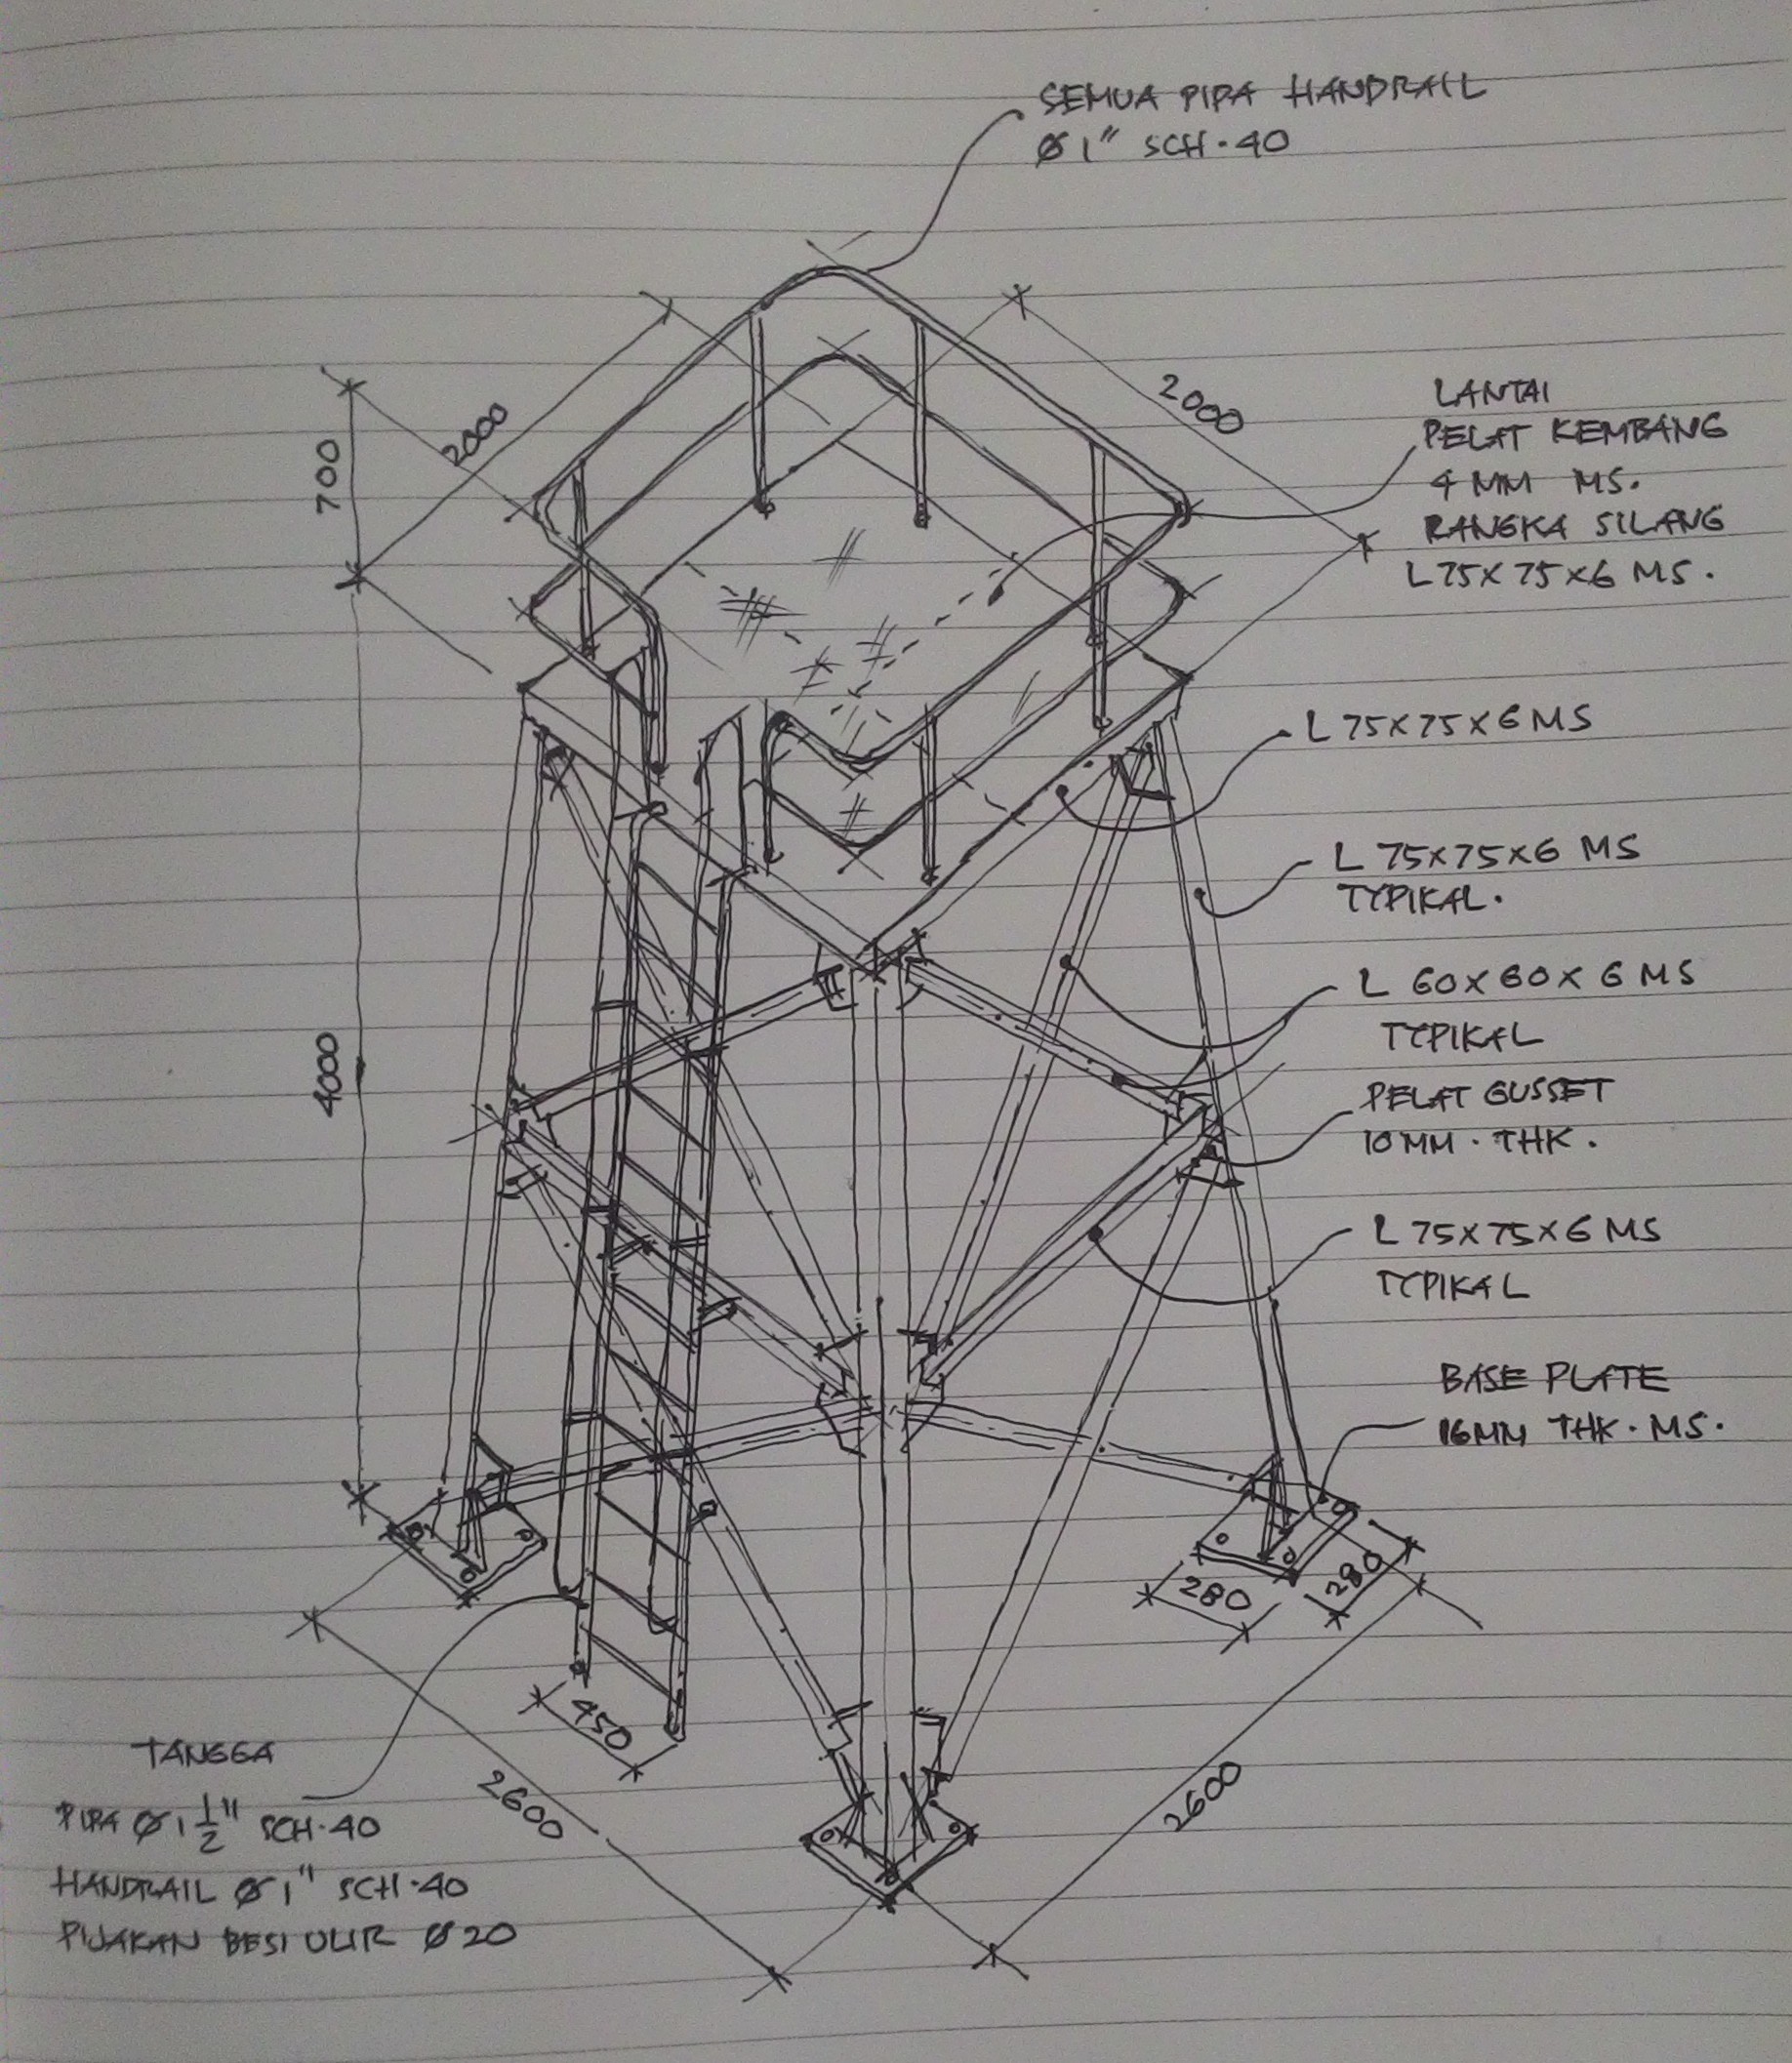 SEMUA PIPA HANDRAIL
Ø 1" SCH.40
2000
2000
700
LANTAI
PELAT KEMBANG
4 MM MS.
RANGKA SILANG
L 75X75X6 MS.
L 75X75X6 MS
L 75X75X6 MS
TYPIKAL.
L 60X60X6 MS
TYPIKAL
4000
PELAT GUSSET
10MM. THK.
L 75X75X6 MS
TYPIKAL
BASE PLATE
16MM THK. MS.
280
280
450
TANGGA
PIPA Ø 1 1/2" SCH.40
HANDRAIL Ø 1" SCH.40
PIJAKAN BESI ULIR Ø 20
2600
2600